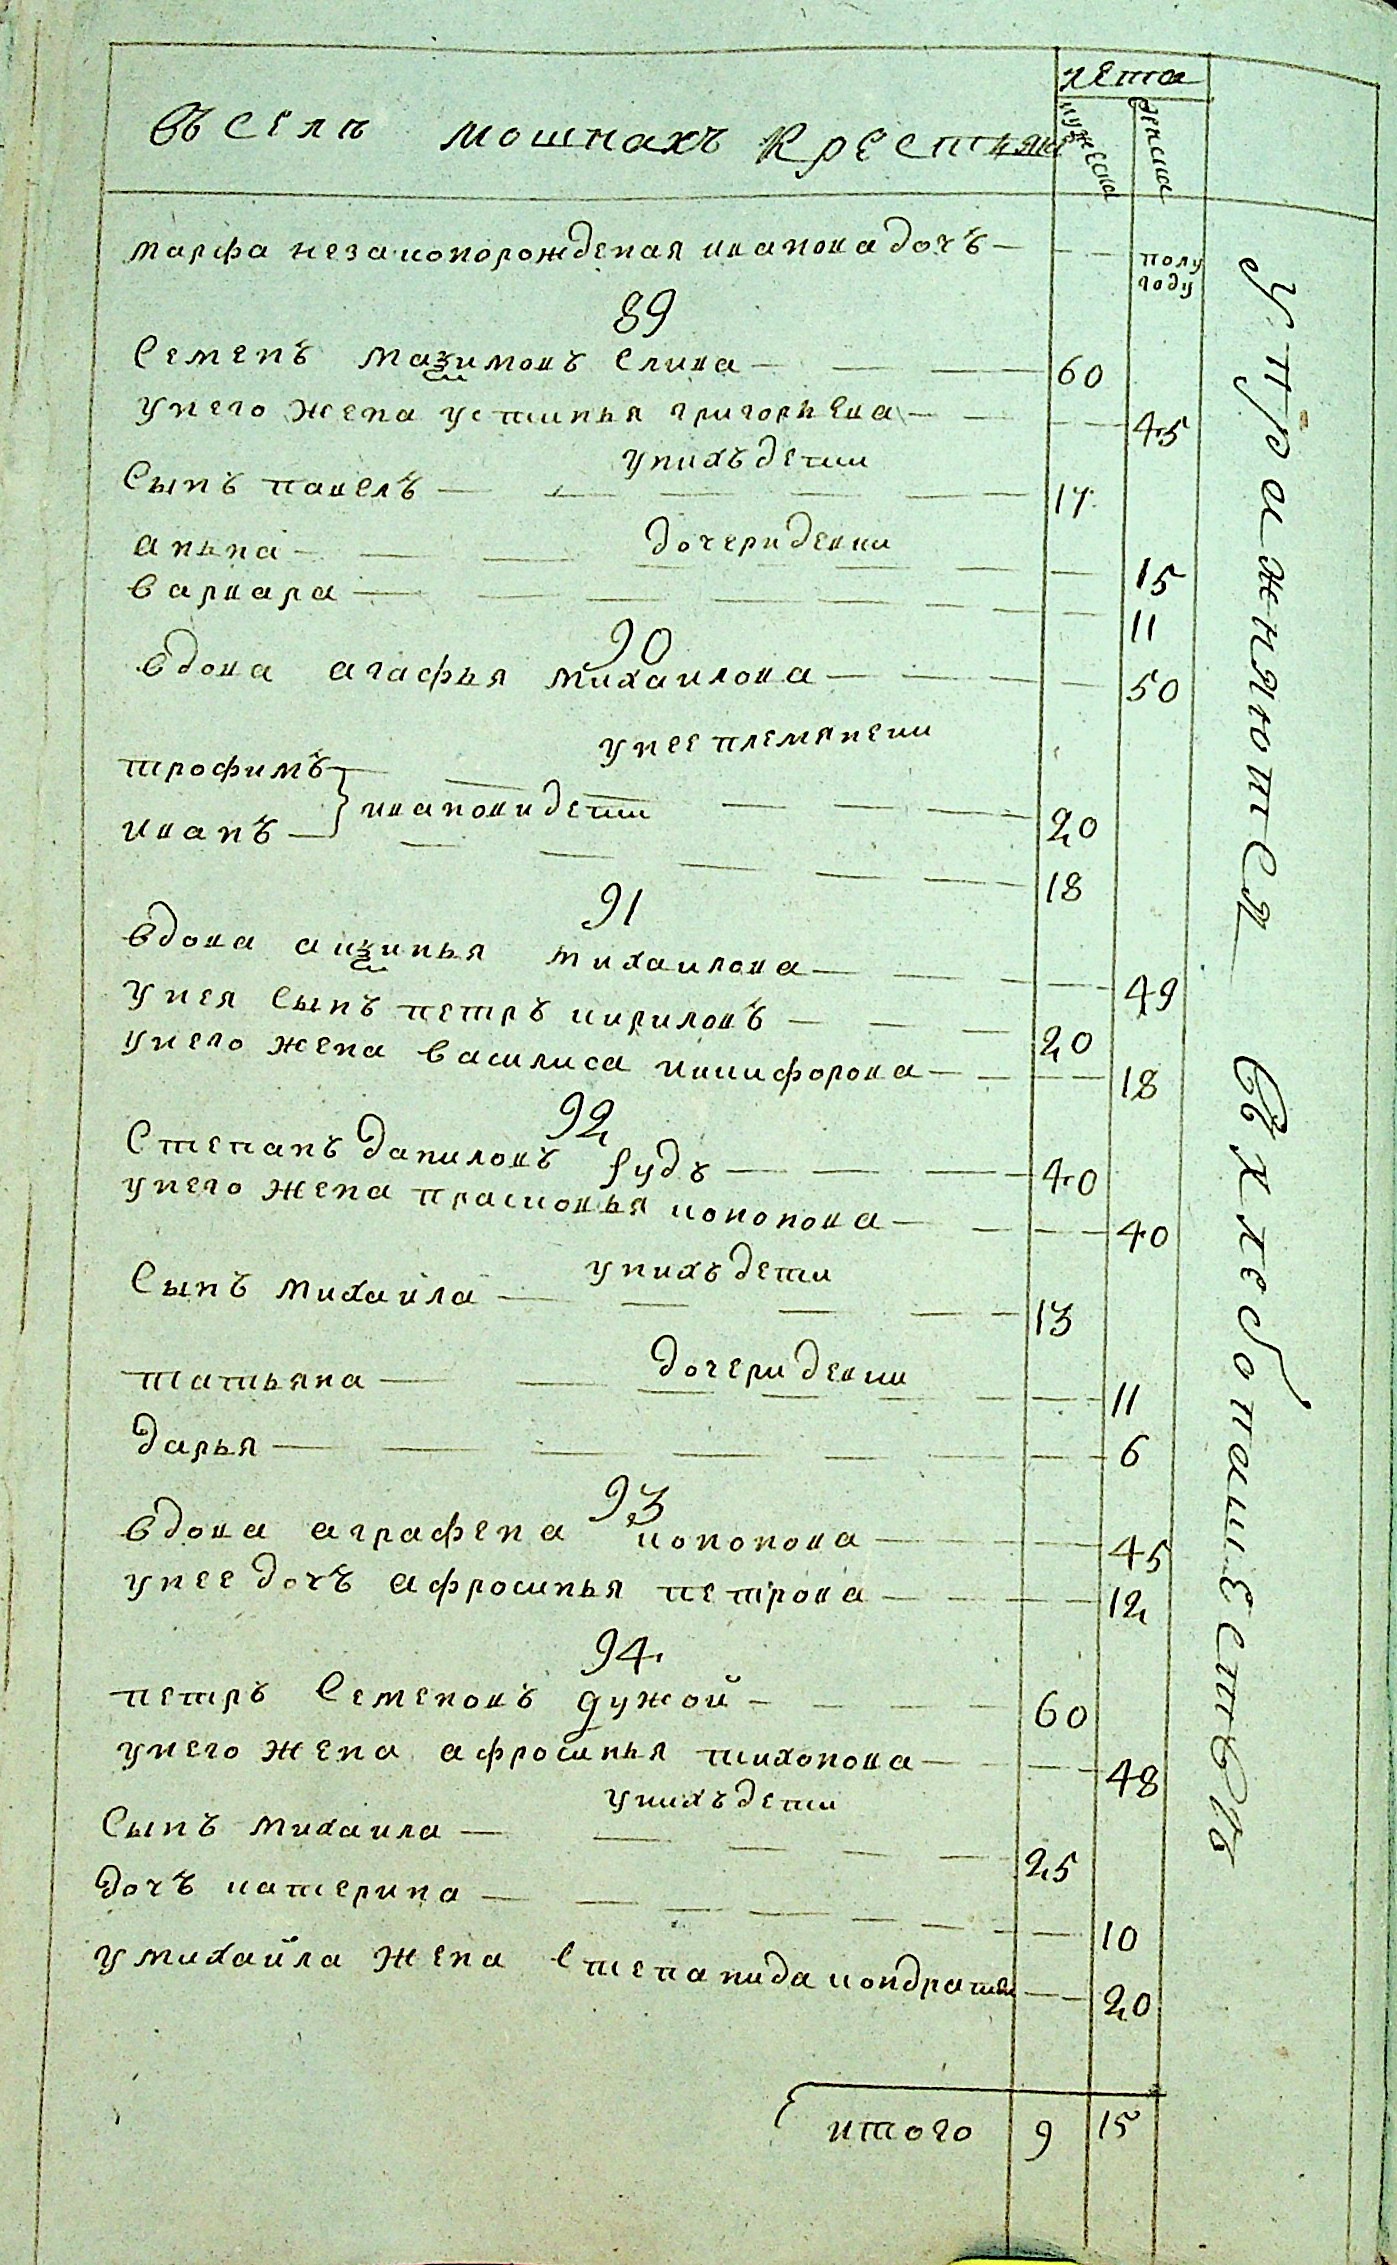 лета
въ селѣ мошнахъ крестьянъ
мужеска
женска
марфа незаконорожденая иванова дочъ
полу
году
89
Семенъ Маѯимовъ Слива 60
унего жена устинья григорьева 45
унихъ дети
Сынъ павелъ 17
дочери девки
аньна 15
варвара 11
90
вдова агафья михаилова 50
унее племянеки
трофимъ 20
иванови дети
иванъ 18
91
вдова аѯинья михаилова 49
унея Сынъ петръ кириловъ 20
унего жена василиса никифорова 18
92
Степанъ даниловъ рудъ 40
унего жена прасковья кононова 40
унихъ дети
Сынъ михаила 13
дочери девки
татьяна 11
дарья 6
93
вдова аграфена кононова 45
унее дочъ афросинья петрова 12
94
петръ Семеновъ дужой 60
унего жена афросинья тихонова 48
унихъ дети
Сынъ михаила 25
дочъ катерина 10
у михайла жена Степанида кондратьва 20
итого 9 15
упражняютца въ хлебопашествѣ